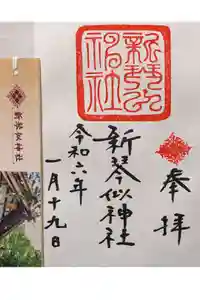 奉拝
新琴似神社
令和六年
一月十九日
新琴似神社